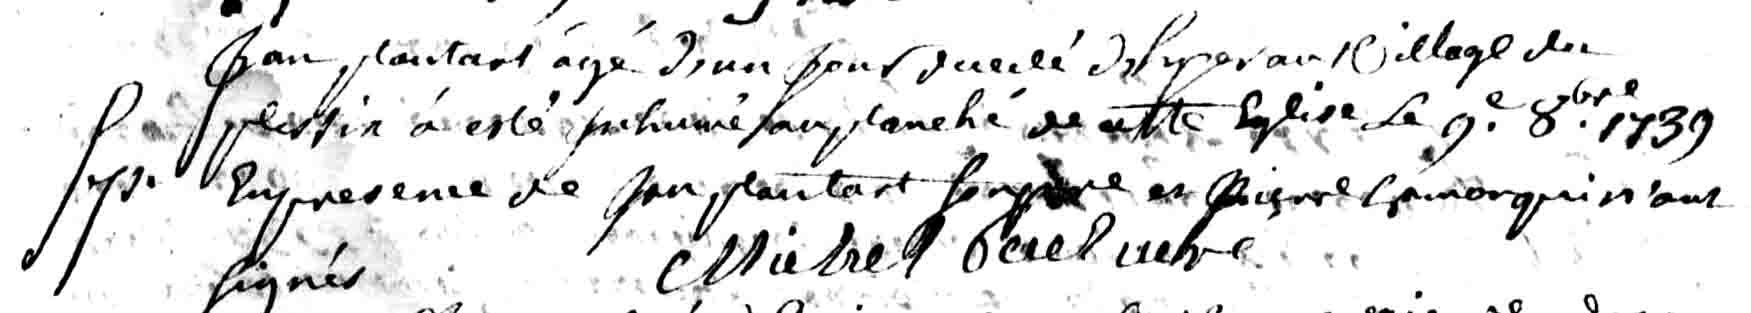 Jan plantart âgé d'un jour décédé d'hyer au Village du
plessix á esté inhumé au planché de cette Eglise Le 9.e 8.bre 1739
En presence de Jan plantart son pere et Pierre qui n'ont
signés Michel